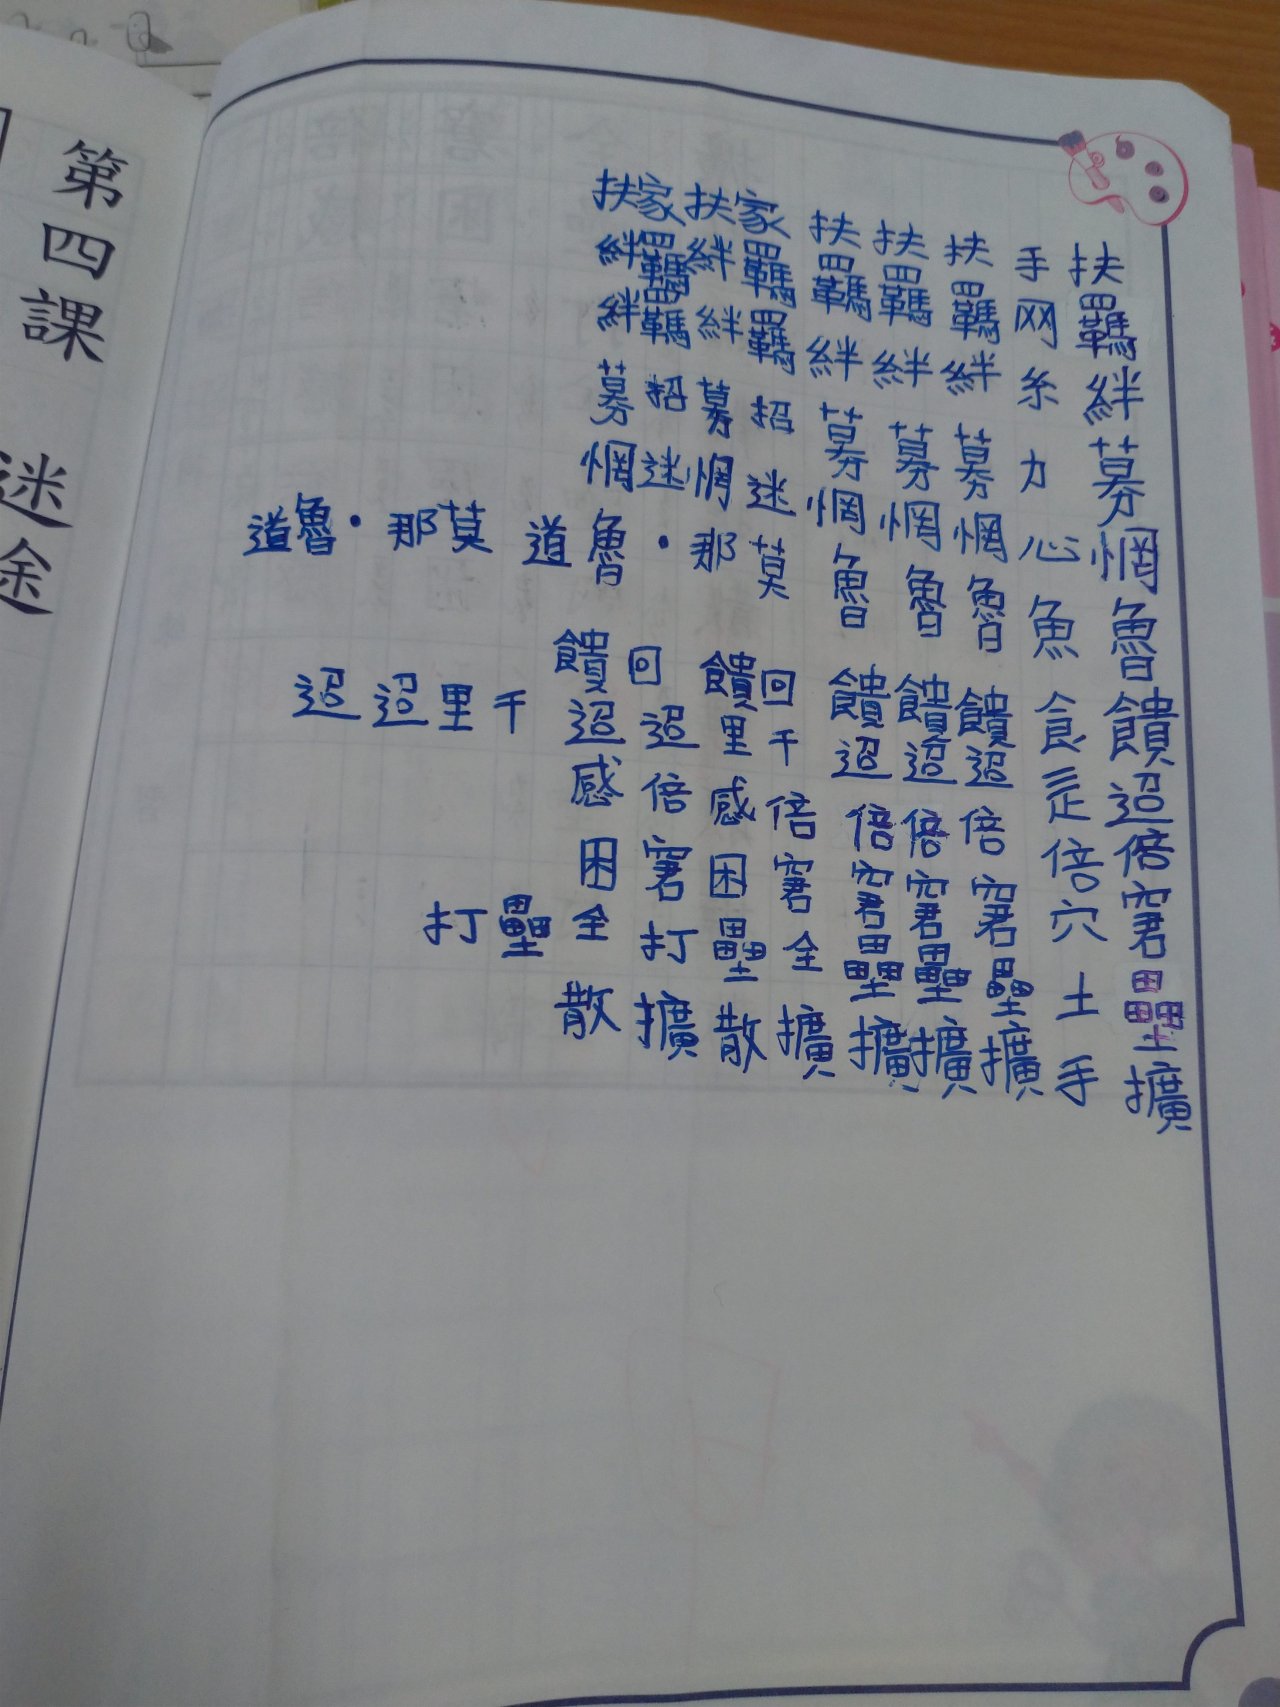 扶羈絆募惘魯饋迢倍窘壘擴
手网糸力心魚食辵倍穴土手
扶羈絆募惘魯饋迢倍窘壘擴
扶羈絆募惘魯饋迢倍窘壘擴
扶羈絆募惘魯饋迢倍窘壘擴
家扶家扶
羈絆羈絆
羈絆羈絆
招募招募
迷惘迷惘
莫那・魯道 莫那・魯道
回饋回饋
千里迢迢 千里迢迢
倍感倍感
窘困窘困
全壘打全壘打
擴散擴散
第四課 迷途